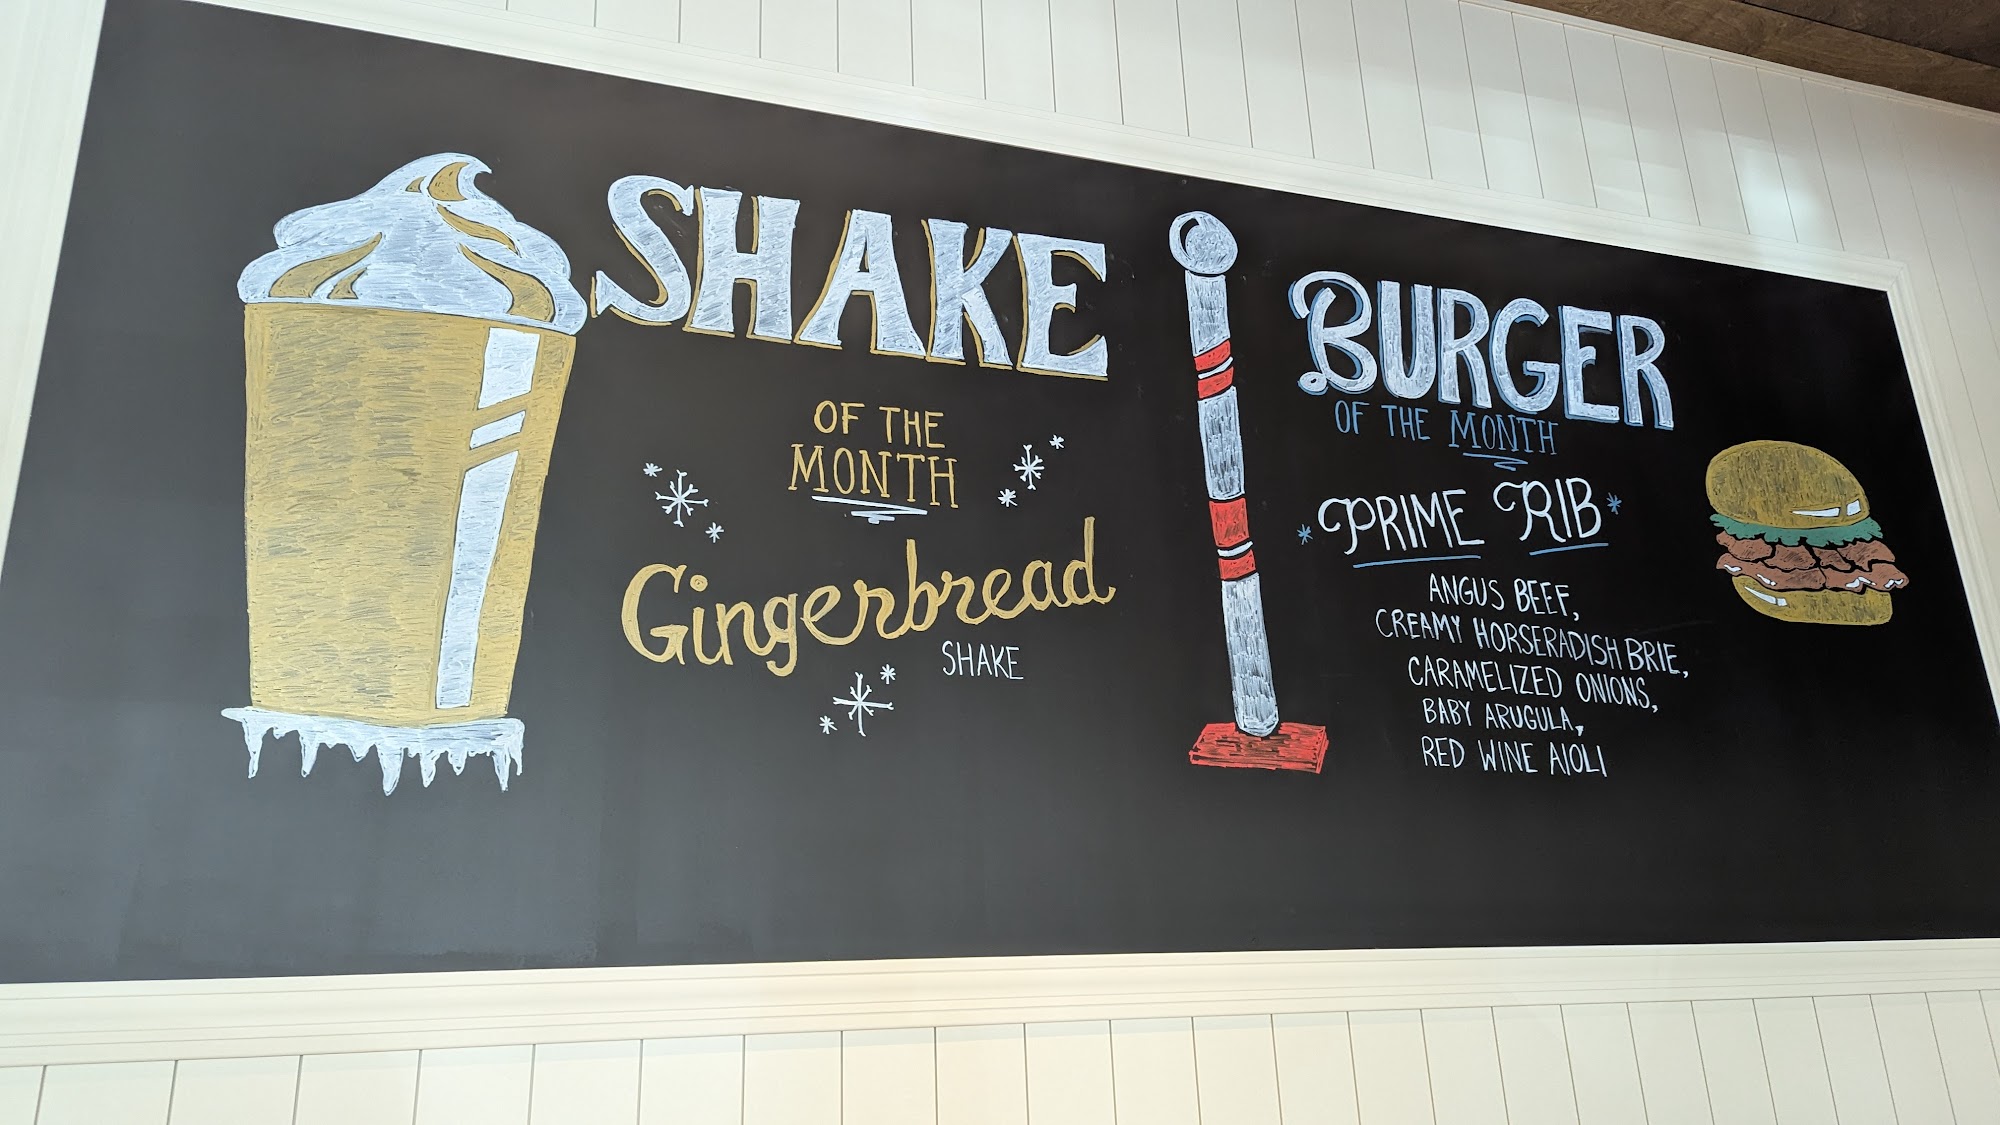 SHAKE
OF THE
MONTH
Gingerbread
SHAKE
BURGER
OF THE MONTH
PRIME RIB
ANGUS BEEF,
CREAMY HORSERADISH BRIE,
CARAMELIZED ONIONS,
BABY ARUGULA,
RED WINE AIOLI